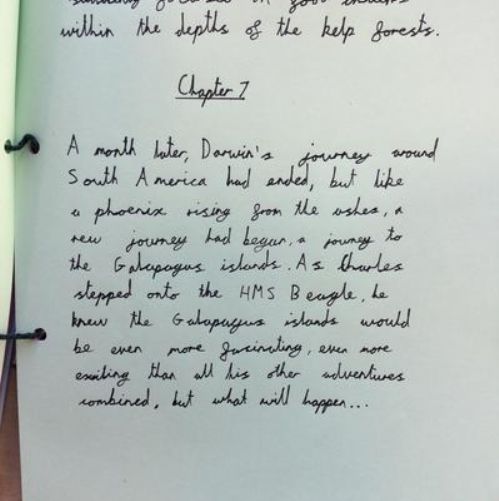 within the depths of the kelp forests.
Chapter 7
A month later, Darwin's journey around
South America had ended, but like
a phoenix rising from the ashes, a
new journey had begun, a journey to
the Galapagus islands. As Charles
stepped onto the HMS Beagle, he
knew the Galapagus islands would
be even more fascinating, even more
exciting than all his other adventures
combined, but what will happen...